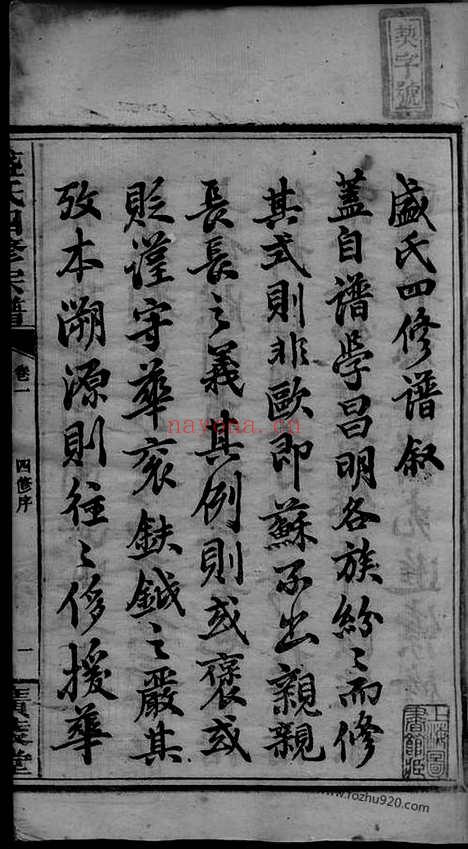 盛氏四修谱叙
蓋自谱學昌明各族紛〻而修
其式則非歐即蘇不出親親
長長之義其例則或褒或
貶謹守華衮鈇鉞之嚴其
攷本溯源則往〻侈援華
盛氏四修宗譜
卷一
四修序
一
廣陵堂
上海圖
書館藏
nayona.cn
www.fozhu920.com